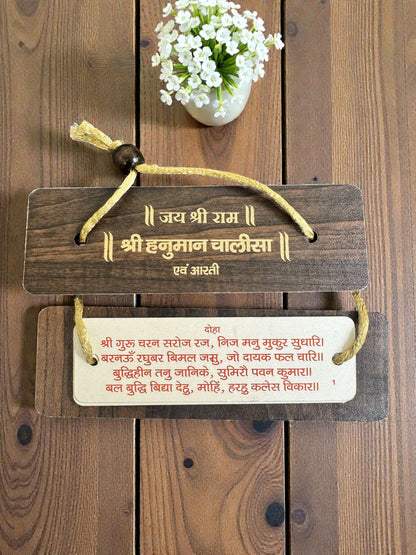 ॥ जय श्री राम ॥
॥ श्री हनुमान चालीसा ॥
एवं आरती
दोहा
श्री गुरु चरन सरोज रज, निज मनु मुकुर सुधारि।
बरनऊँ रघुबर बिमल जसु, जो दायक फल चारि॥
बुद्धिहीन तनु जानिके, सुमिरौ पवन कुमार॥
बल बुद्धि बिद्या देहु, मोहिं, हरहु कलेस विकार॥
1